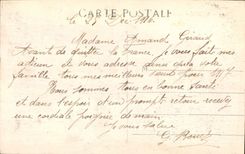 CARTE POSTALE
le 27 Dec 1916
Madame Armand Giraud
Avant de quitter la France je vous fait mes
adieux et vous adresse ainsi qu'a votre
famille tous mes meilleurs vœux pour 1917
Nous sommes tous en bonne santé
et dans l'espoir d'un prompt retour recevez
une cordiale poignée de main